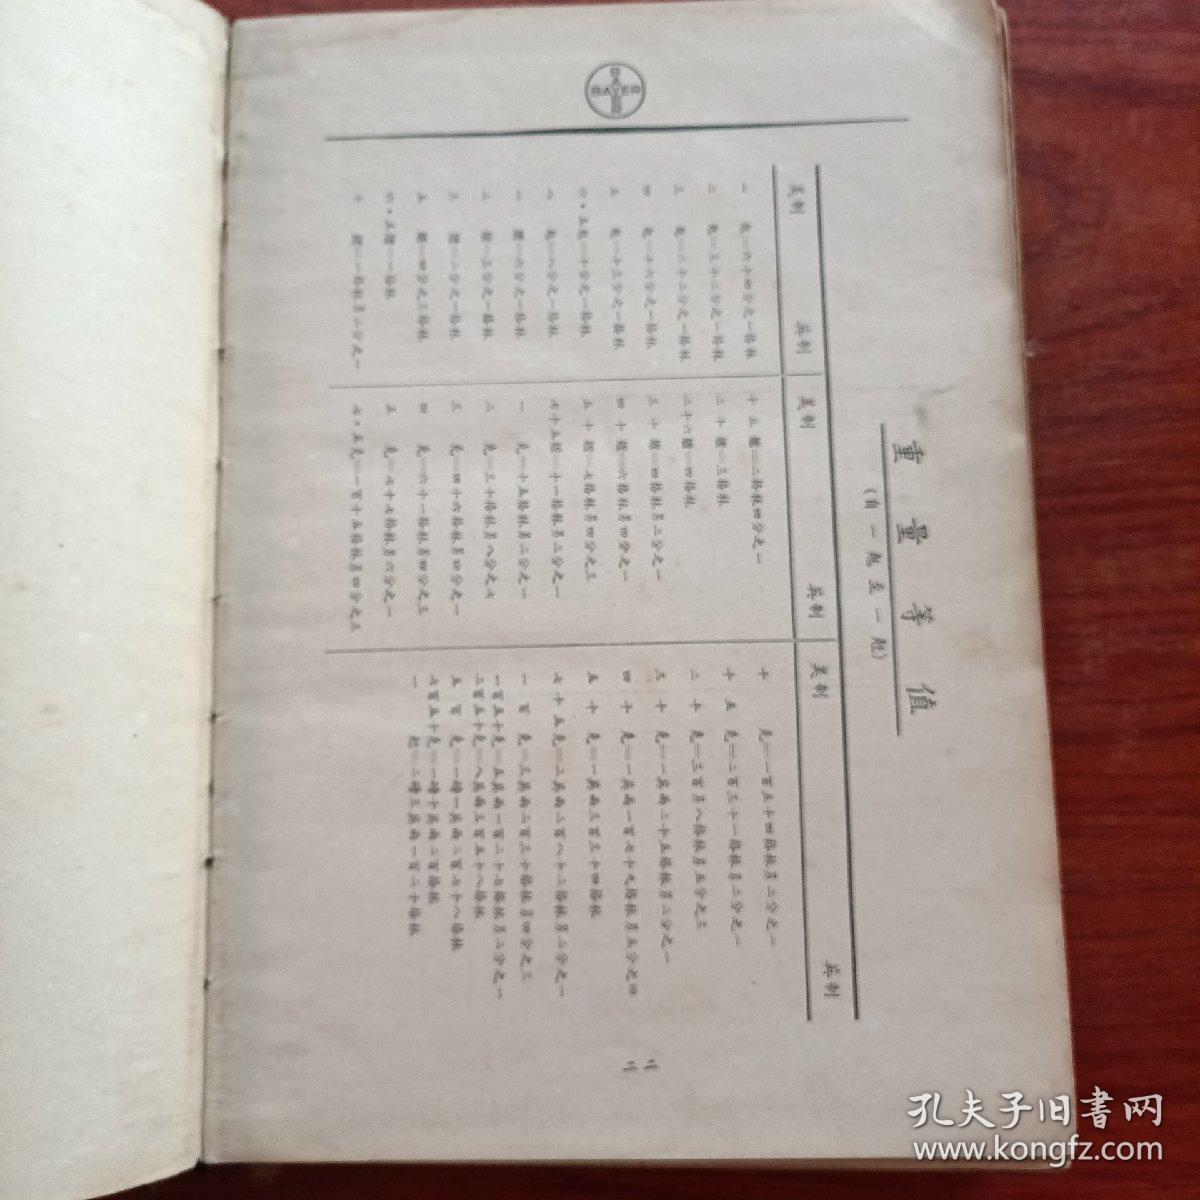 重量等值
(自一兞至一兛)
美制 英制
一 兞=六十四分之一格林
二 兞=三十二分之一格林
三 兞=二十二分之一格林
四 兞=十六分之一格林
五 兞=十三分之一格林
六・五兞=十分之一格林
八 兞=八分之一格林
一 兣=六分之一格林
二 兣=三分之一格林
三 兣=二分之一格林
五 兣=四分之三格林
六・五兣=一格林
十 兣=一格林另二分之一
美制 英制
十五兣=二格林四分之一
二十兣=三格林
二十六兣=四格林
三十兣=四格林另二分之一
四十兣=六格林另四分之一
五十兣=七格林另四分之三
七十五兣=十一格林另二分之一
一 克=十五格林另二分之一
二 克=三十格林另八分之七
三 克=四十六格林另四分之一
四 克=六十一格林另四分之三
五 克=七十七格林另六分之一
七・五克=一百十五格林另四分之三
美制 英制
十 克=一百五十四格林另三分之一
十五克=二百三十一格林另二分之一
二十克=三百另八格林另五分之三
三十克=一英兩二十五格林另二分之一
四十克=一英兩一百七十九格林另五分之四
五十克=一英兩三百三十四格林
七十五克=二英兩二百八十二格林另二分之一
一百克=三英兩二百三十格林另四分之三
一百五十克=五英兩一百二十七格林另二分之一
二百五十克=八英兩三百五十八格林
五百克=一磅一英兩二百七十八格林
七百五十克=一磅十英兩二百格林
一 兛=二磅三英兩一百二十格林
BAYER
BAYER
孔夫子旧书网
www.kongfz.com